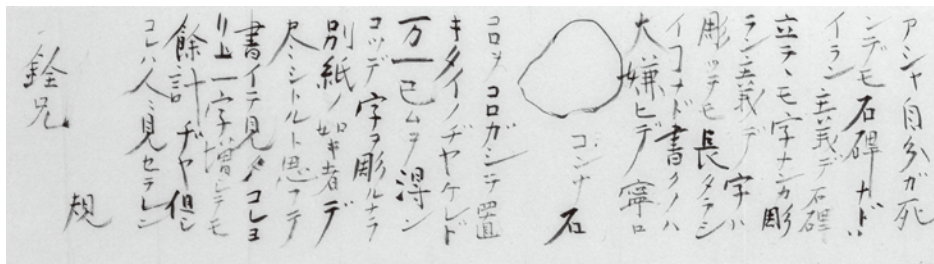 アシャ自分ガ死
ンデモ石碑ナドハ
イラン主義デ石碑
立テヽモ字ナンカ彫
ラン主義デ字ハ
彫ッテモ長タラシ
イコナド書クノハ
大嫌ヒデ寧ロ
コンナ石
コロヲコロガシテ置
キタイノヂヤケレド
万一已ムヲ得ン
コッデ字ヲ彫ルナラ
別紙ノ如キ者デ
尽シトルト思フテ
書イテ見タコレヨ
リ上一字増シテモ
餘計ヂヤ但シ
コレハ人ニ見セテレン
規
銓兄